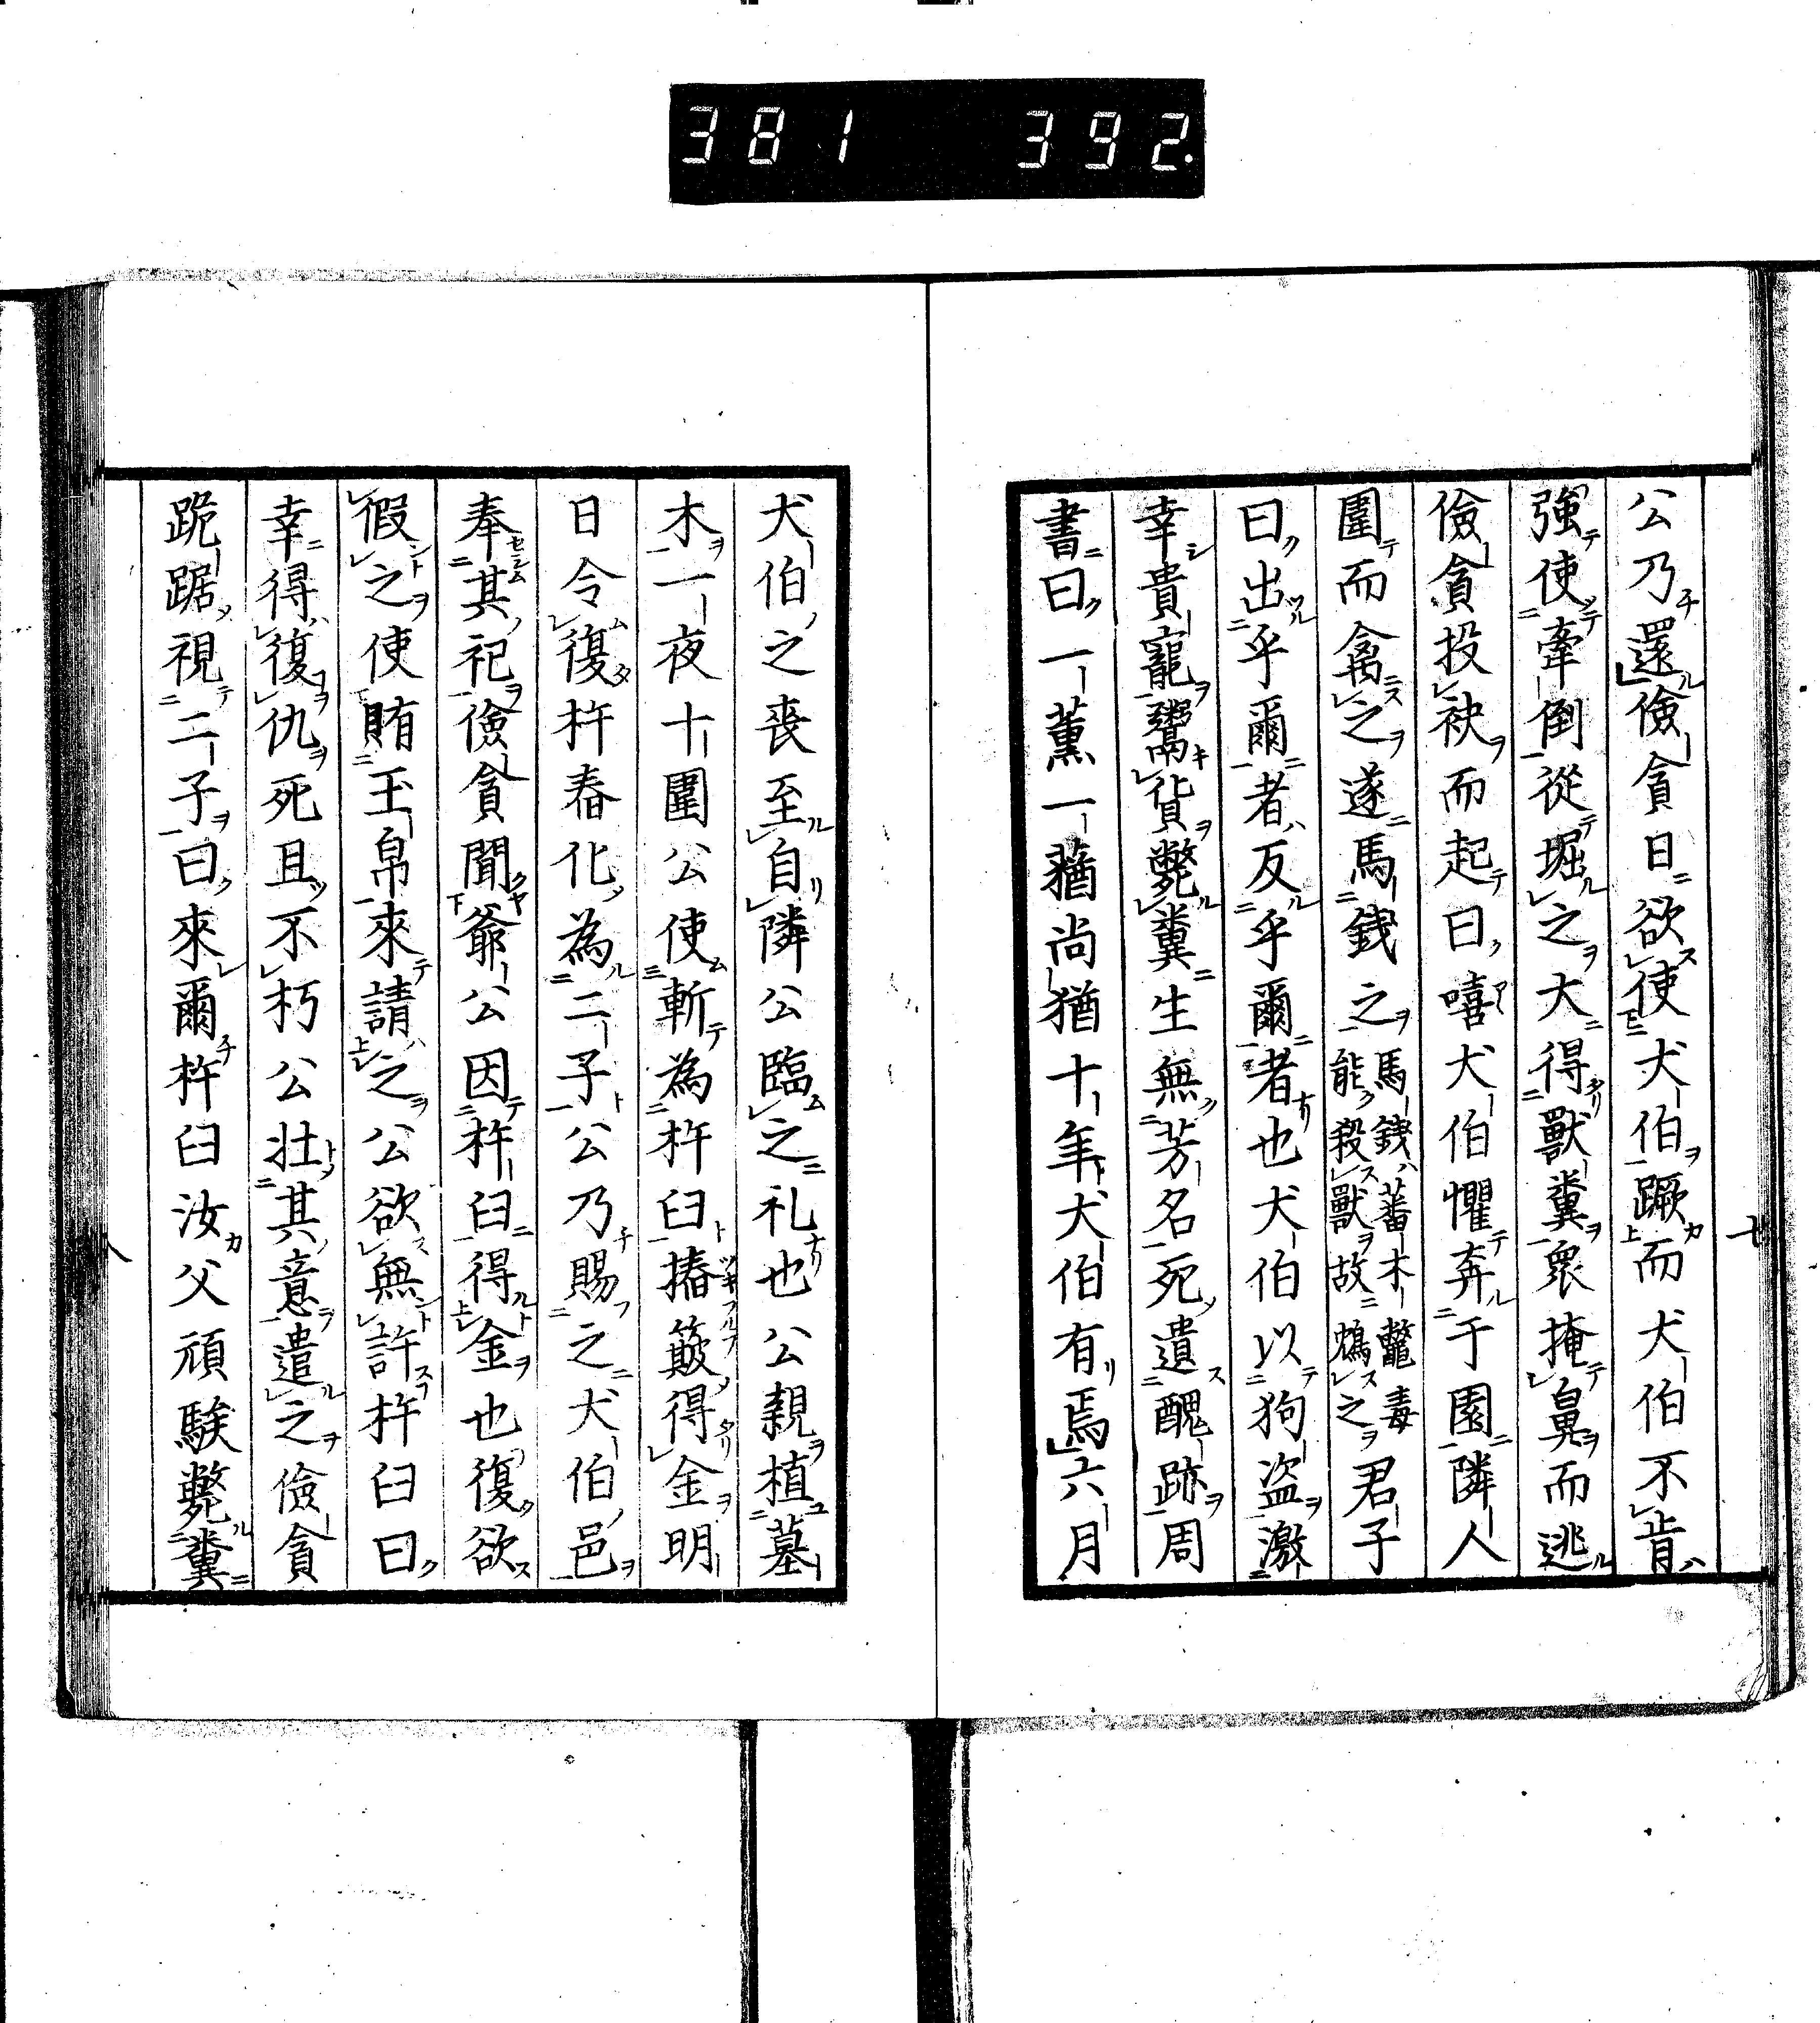 381 392.
公乃還儉貪日欲使犬伯蹶而犬伯不肯
強使牽倒從堀之大得獸糞衆掩鼻而逃
儉貪投袂而起曰嘻犬伯懼奔于園隣人
圍而禽之遂馬錢之馬錢蕃木鼈毒能殺獸故鴆之君子
曰出乎爾者反乎爾者也犬伯以狗盗激
幸貴寵鬻貨斃糞生無芳名死遺醜跡周
書曰一薰一蕕尚猶十年犬伯有焉六月
犬伯之喪至自隣公臨之礼也公親植墓
木一夜十圍公使斬為杵臼摏簸得金明
日令復杵舂化為二子公乃賜之犬伯邑
奉其祀儉貪聞爺公因杵臼得金也復欲
假之使賄玉帛來請之公欲無許杵臼曰
幸得復仇死且不朽公壮其意遣之儉貪
跪踞視二子曰來爾杵臼汝父頑騃斃糞